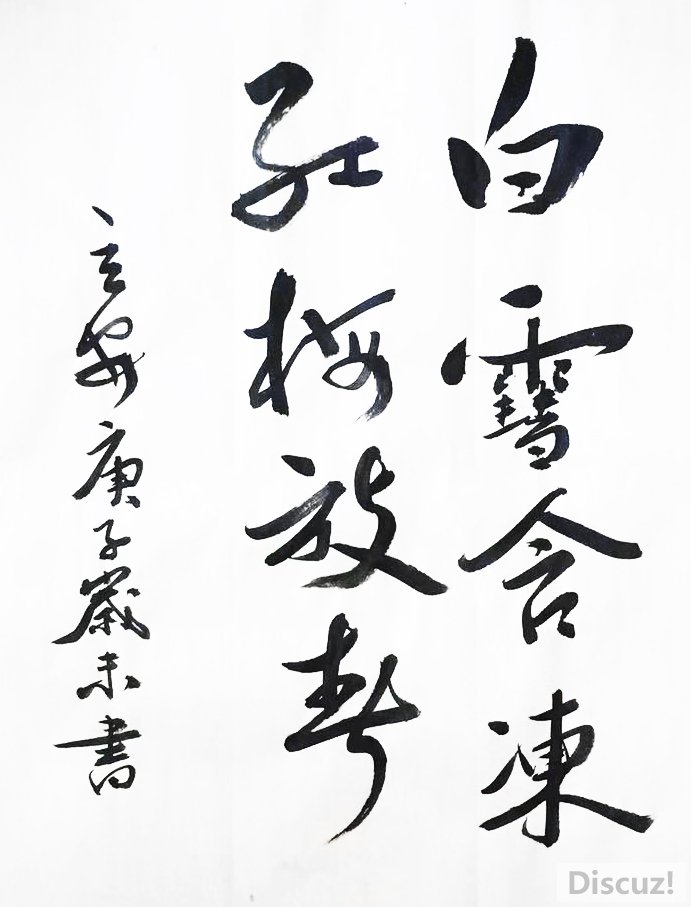 白雪含凍
紅梅放春
立安庚子歲末書
Discuz!